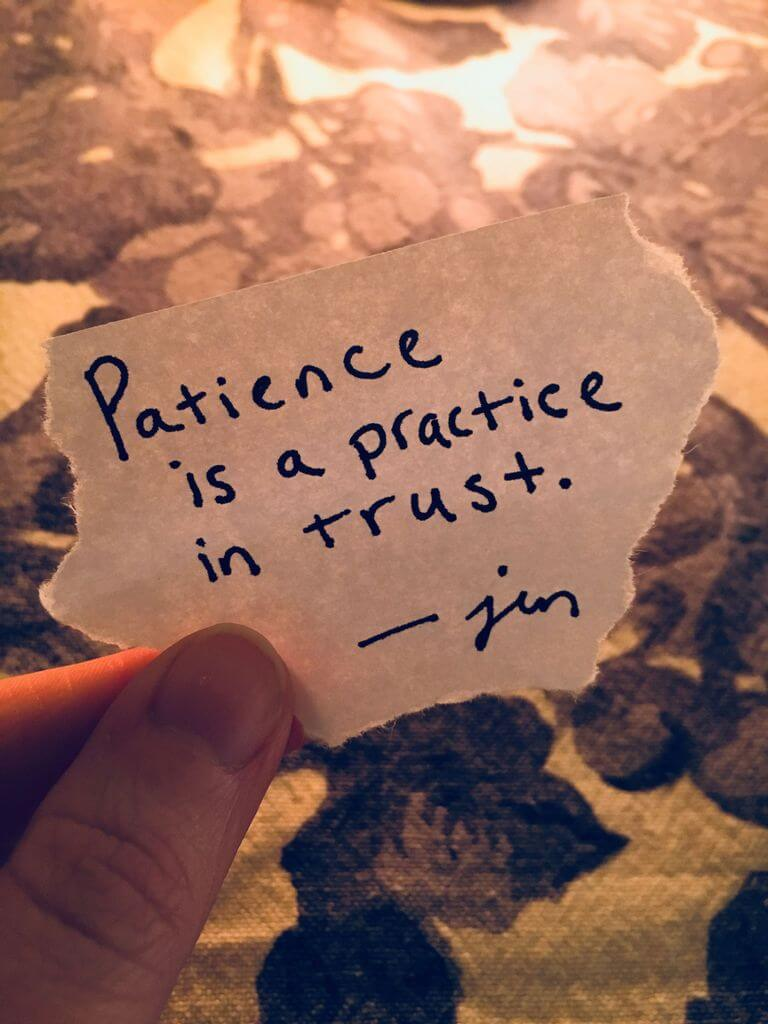 Patience
is a practice
in trust.
— jen